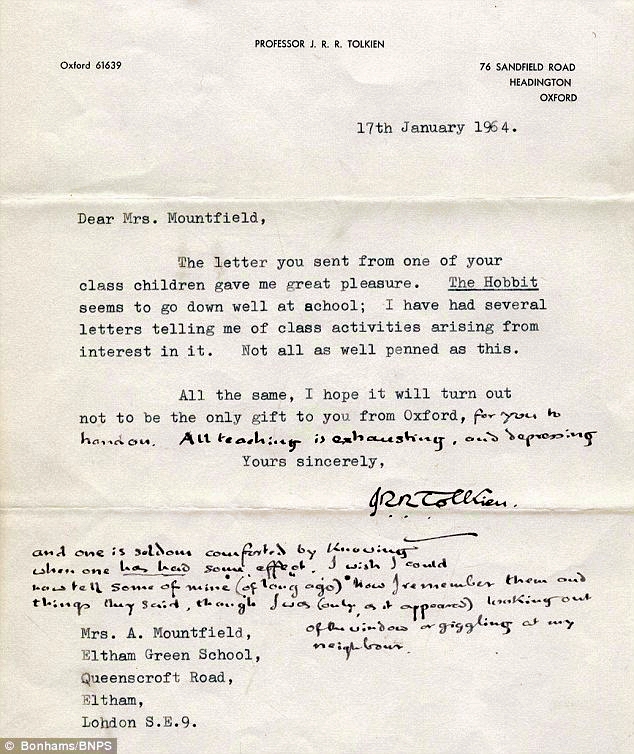 PROFESSOR J. R. R. TOLKIEN
Oxford 61639
76 SANDFIELD ROAD
HEADINGTON
OXFORD
17th January 1964.
Dear Mrs. Mountfield,
The letter you sent from one of your
class children gave me great pleasure. The Hobbit
seems to go down well at school; I have had several
letters telling me of class activities arising from
interest in it. Not all as well penned as this.
All the same, I hope it will turn out
not to be the only gift to you from Oxford, for you to
hand on. All teaching is exhausting, and depressing
Yours sincerely,
JRR Tolkien.
and one is seldom comforted by knowing
when one has had some effect. I wish I could
now tell some of mine (of long ago) how I remember them and
things they said, though I was (only, as it appeared) looking out
of the window or giggling at my
neighbour.
Mrs. A. Mountfield,
Eltham Green School,
Queenscroft Road,
Eltham,
London S.E.9.
© Bonhams/BNPS